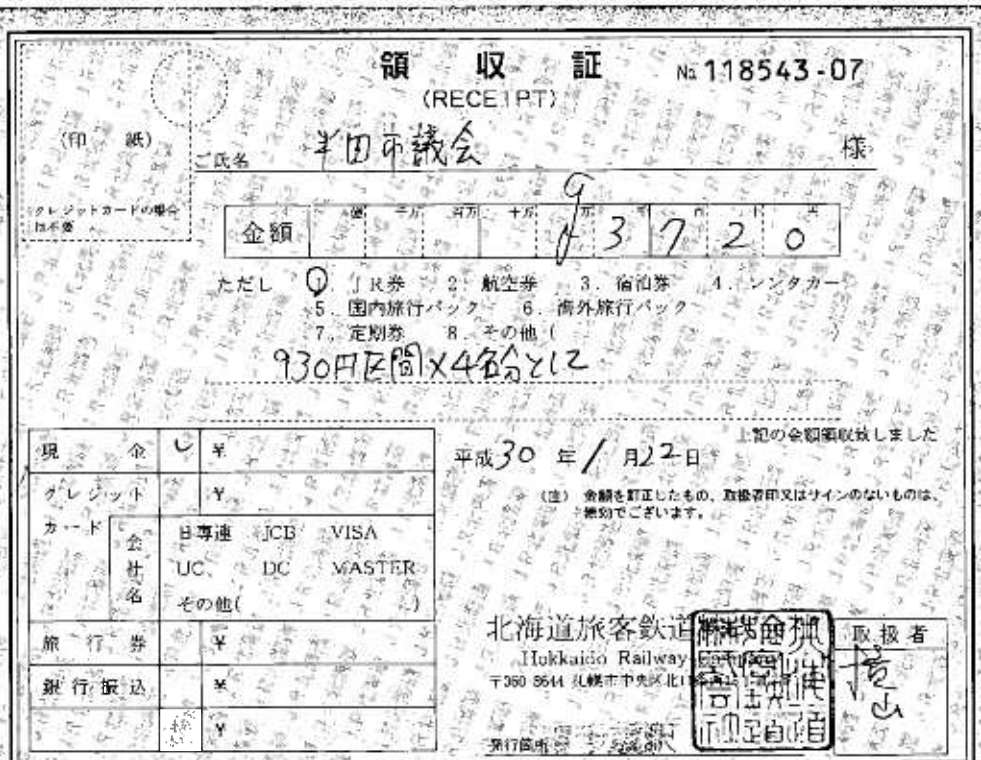 領収証 № 118543-07
(RECEIPT)
(印 紙)
ご氏名 半田市議会 様
クレジットカードの場合
は不要
金額 億 千万 百万 十万 万 千 百 十 円
¥3720
ただし ① JR券 2. 航空券 3. 宿泊券 4. レンタカー
5. 国内旅行パック 6. 海外旅行パック
7. 定期券 8. その他 (
930円区間×4名分として
上記の金額領収致しました
平成30年1月22日
(注) 金額を訂正したもの、取扱者印又はサインのないものは、
無効でございます。
現 金 ¥
クレジット ¥
カード
会社名
日専連 JCB VISA
UC DC MASTER
その他( )
旅行券 ¥
銀行振込 ¥
¥
北海道旅客鉄道
Hokkaido Railway Company
〒060-8644 札幌市中央区北11条西15丁目
取扱者
発行箇所